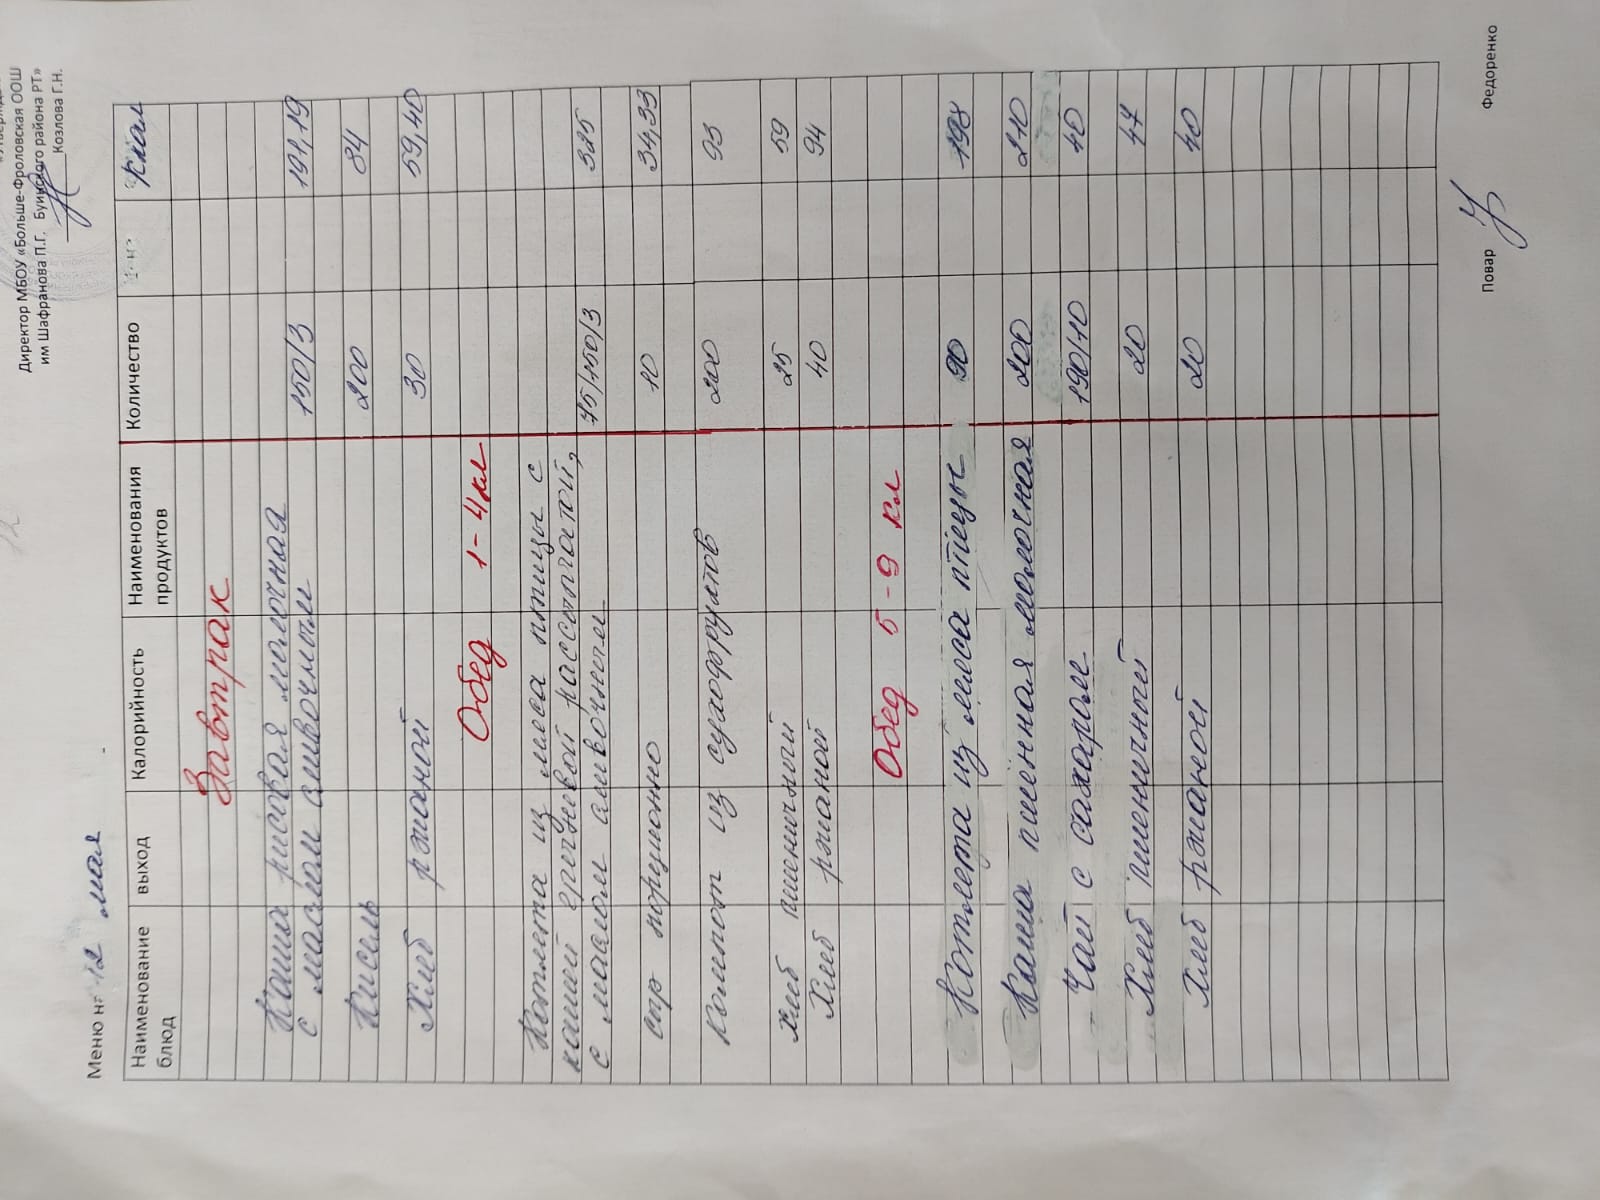 Директор МБОУ «Больше-Фроловская ООШ
им Шафранова П.Г. Буинского района РТ»
Козлова Г.Н.
Меню на 12 мая
Наименование блюд выход Калорийность Наименования продуктов Количество Ккал
Завтрак
Каша рисовая молочная
с маслом сливочным 150/3 191,19
Кисель 200 84
Хлеб ржаной 30 59,40
Обед 1-4кл
Котлета из мяса птицы с
кашей гречневой рассыпчатой,
с маслом сливочным 75/150/3 325
сыр порционно 10 34,33
Компот из сухофруктов 200 93
Хлеб пшеничный 25 59
Хлеб ржаной 40 94
Обед 5-9 кл
Котлета из мяса птицы 90 198
Каша пшённая молочная 200 210
Чай с сахаром 190/10 40
Хлеб пшеничный 20 47
Хлеб ржаной 20 40
Повар Федоренко